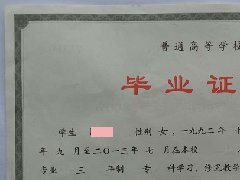 普通高等学校
毕业证
学生 性别 女,一九九二年
年 九 月至二〇一三年 七 月在本校
专业 三 年制 专 科学习,修完教学